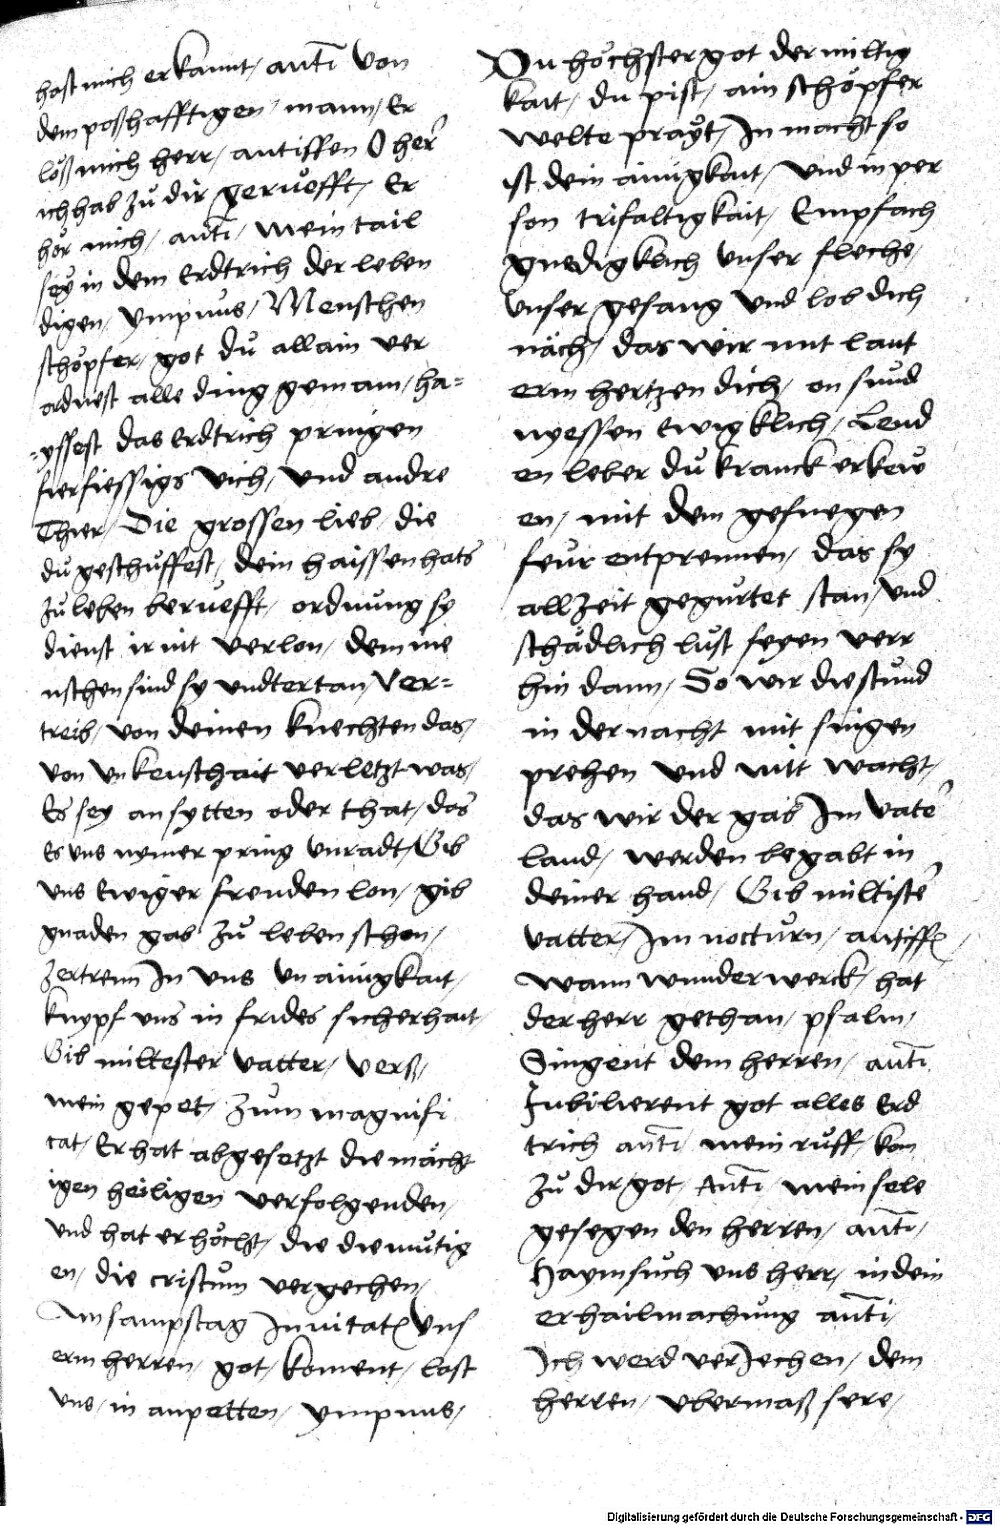 hast mich erkannt / anti Von
dem poßhafftigen / mann / Er
löß mich herr / antiffen O her
ich hab zů dir gerůefft / Er
hör mich / anti / mein tail
sey in dem Erdtrich der leben
digen / ympnus / Menschen
schöpfer / got dů allain ver
ordnest alle ding gemain / ha=
=yssest das Erdtrich pringen
fierfiessigs vich / vnd andre
Thier / Die grossen lieb / die
dů geschůffest / dein haissen hats
zů leben berůefft / ordnung sy
dienst ir nit verlon / dem me
nschen sind sy vndtertan / Ver=
treib / von deinen knechten das /
von vnkeuschait verletzt was /
Es sey an sytten oder that / das
Es vns nymer pring vnradt / Gib
vns Ewiger freuden lon / gib
gnaden gab zů leben schon /
Zertrenn In vns vnainigkait /
knypf vns in frides sicherhait /
Gib miltester vatter / Verß /
mein gepet / zum magnifi
cat / Er hat abgesetzt die mächt
igen heiligen verfolgenden /
vnd hat erhöcht / die diemůtig
en / die cristum vergechen /
Am sampstag Inuitat Vns
erm herren / got / koment / last
vns / in anpetten / ympnus /
Du höchster got der miltig
kait / du pist / ain schöpfer
welte prayt / In macht so
ist dein ainigkait / vnd in per
son trifaltigkait / Empfach
gnedigklich vnser fleche /
vnser gesang vnd lob dich
näch / das wir mit laut
erm hertzen dich / on sünd
nyessen Ewigklich / Lend
en leber dů kranck erkew
en / mit dem gefuegen
feür entprennen / das sy
allzeit gegürtet stan / vnd
schädlich lust seyen verr
hin dann / So wir die stůnd
in der nacht mit singen
prehen vnd mitt wacht /
das wir der gab Im vate
land / werden begabt in
deiner hand / Gib miltiste
vatter / Im nocturn / antiff
wann wunderwerck / hat
der herr gethan / psalm /
Singent dem herren / anti
Jubilierent got alles Erd
trich anti / mein růff / kom
zů dir got / Anti / mein sele
gesegen den herren / anti /
Haymsůch vns herr / in dein
er hailmachung anti /
Ich werd verJechen / dem
herren / vbermaß sere /
Digitalisierung gefördert durch die Deutsche Forschungsgemeinschaft - DFG